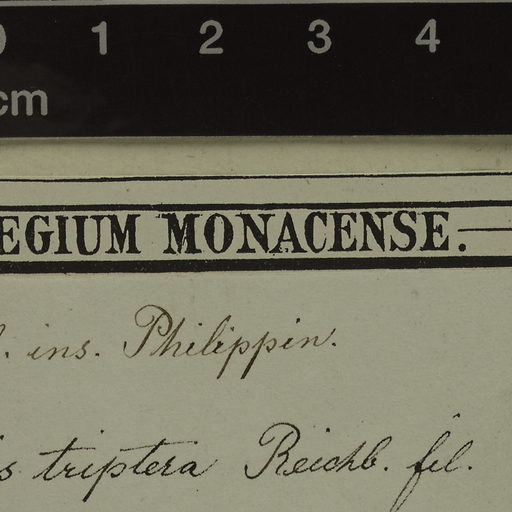 0 1 2 3 4
cm
EGIUM MONACENSE.
. ins. Philippin.
s triptera Reichb. fil.